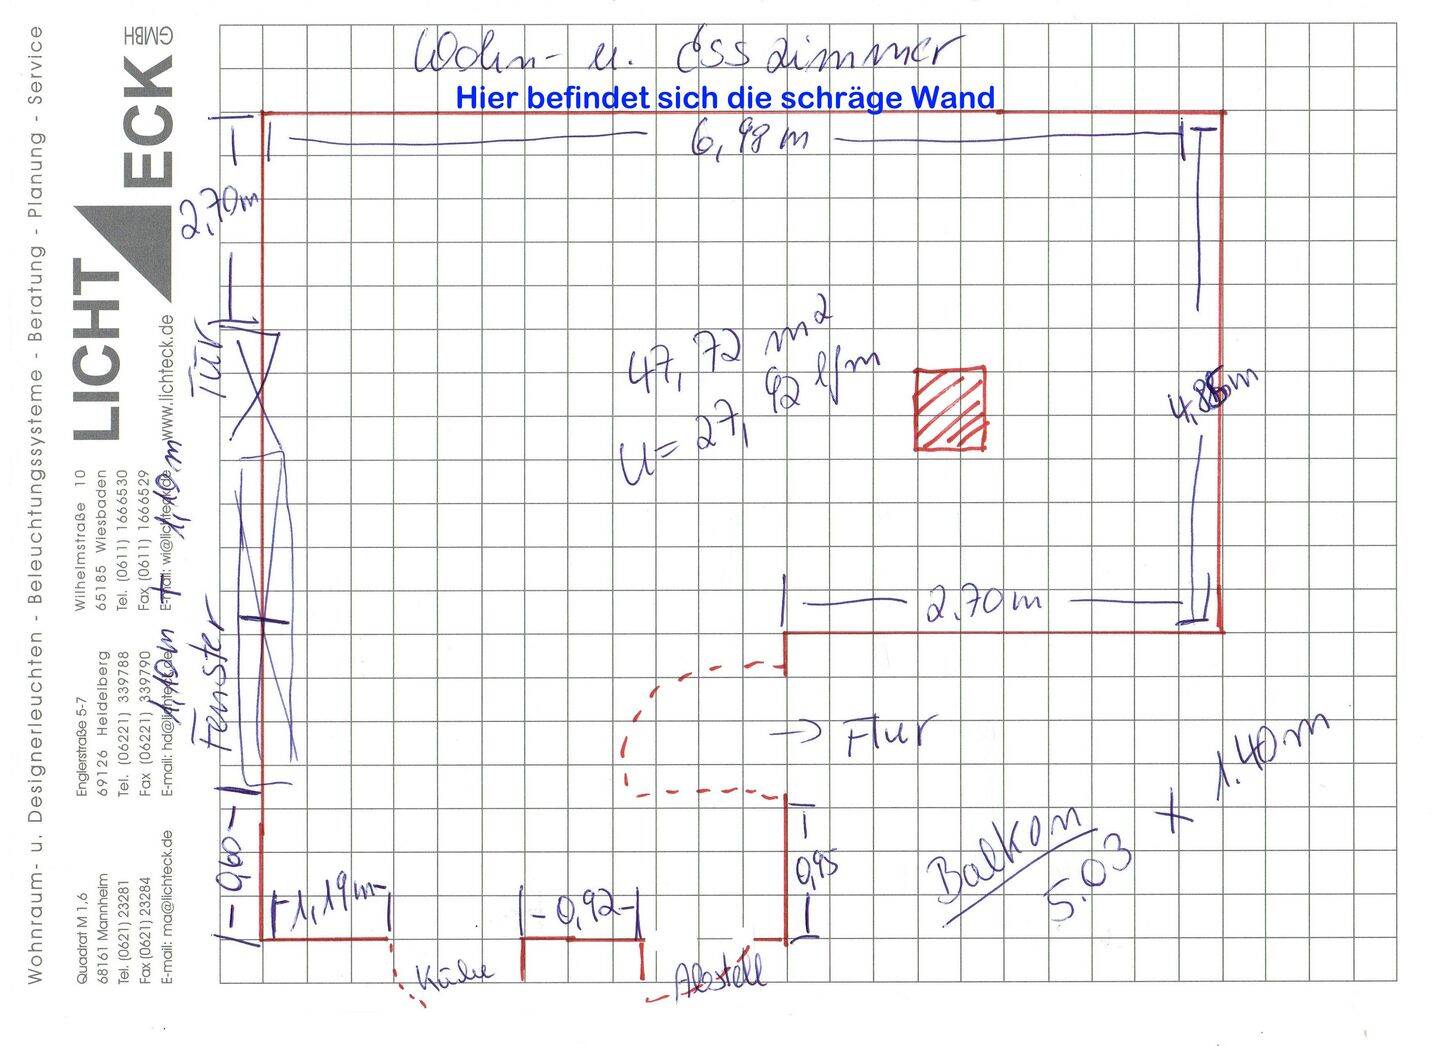 Wohn- u. Esszimmer
Hier befindet sich die schräge Wand
6,98 m
2,70m
47,72 m²
U= 27,92 lfm
4,85m
Tür
1,10m + 1,10m
Fenster
2.70m
→ Flur
0,60
1,19m
0,92
0,95
Küche
Abstell
Balkon
5.03 x 1.40m
LICHT ECK GMBH
www.lichteck.de
Wohnraum- u. Designerleuchten - Beleuchtungssysteme - Beratung - Planung - Service
Wilhelmstraße 10
65185 Wiesbaden
Tel. (0611) 1666530
Fax (0611) 1666529
E-mail: wi@lichteck.de
Englerstraße 5-7
69126 Heidelberg
Tel. (06221) 339788
Fax (06221) 339790
E-mail: hd@lichteck.de
Quadrat M 1,6
68161 Mannheim
Tel. (0621) 23281
Fax (0621) 23284
E-mail: ma@lichteck.de